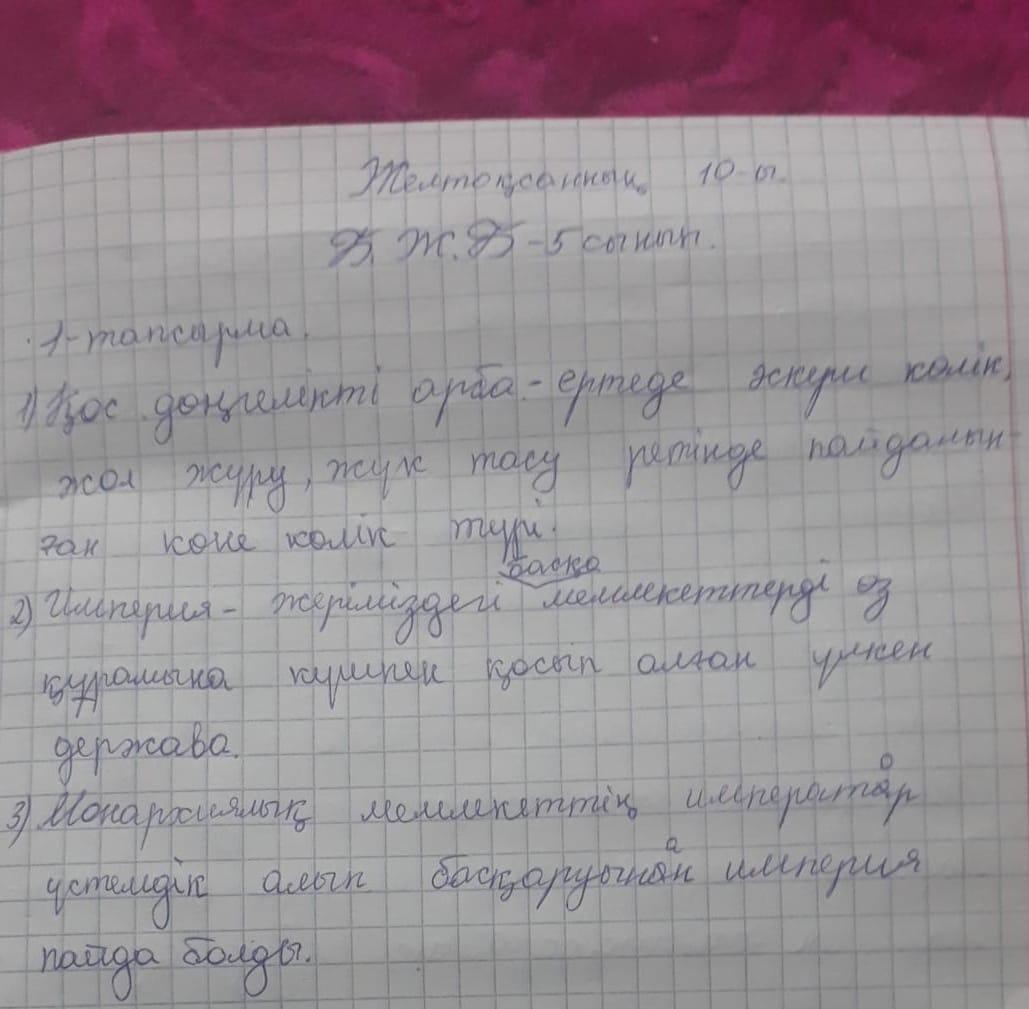 Желтоқсанның 10-ы.
Б.Ж.Б-5 сынып.
1-тапсырма.
1) Қос доңгелікті арба-ертеде әскери колік,
жол журу, жук тасу ретінде пайдалын-
ған коне колік турі.
баска
2) Империя- жеріміздегі мемлекеттерді оз
құрамына кушпен қосып алған улкен
держава.
3) Монархиялық мемлекеттің император
устемдік алып басқаруынан империя
пайда болды.